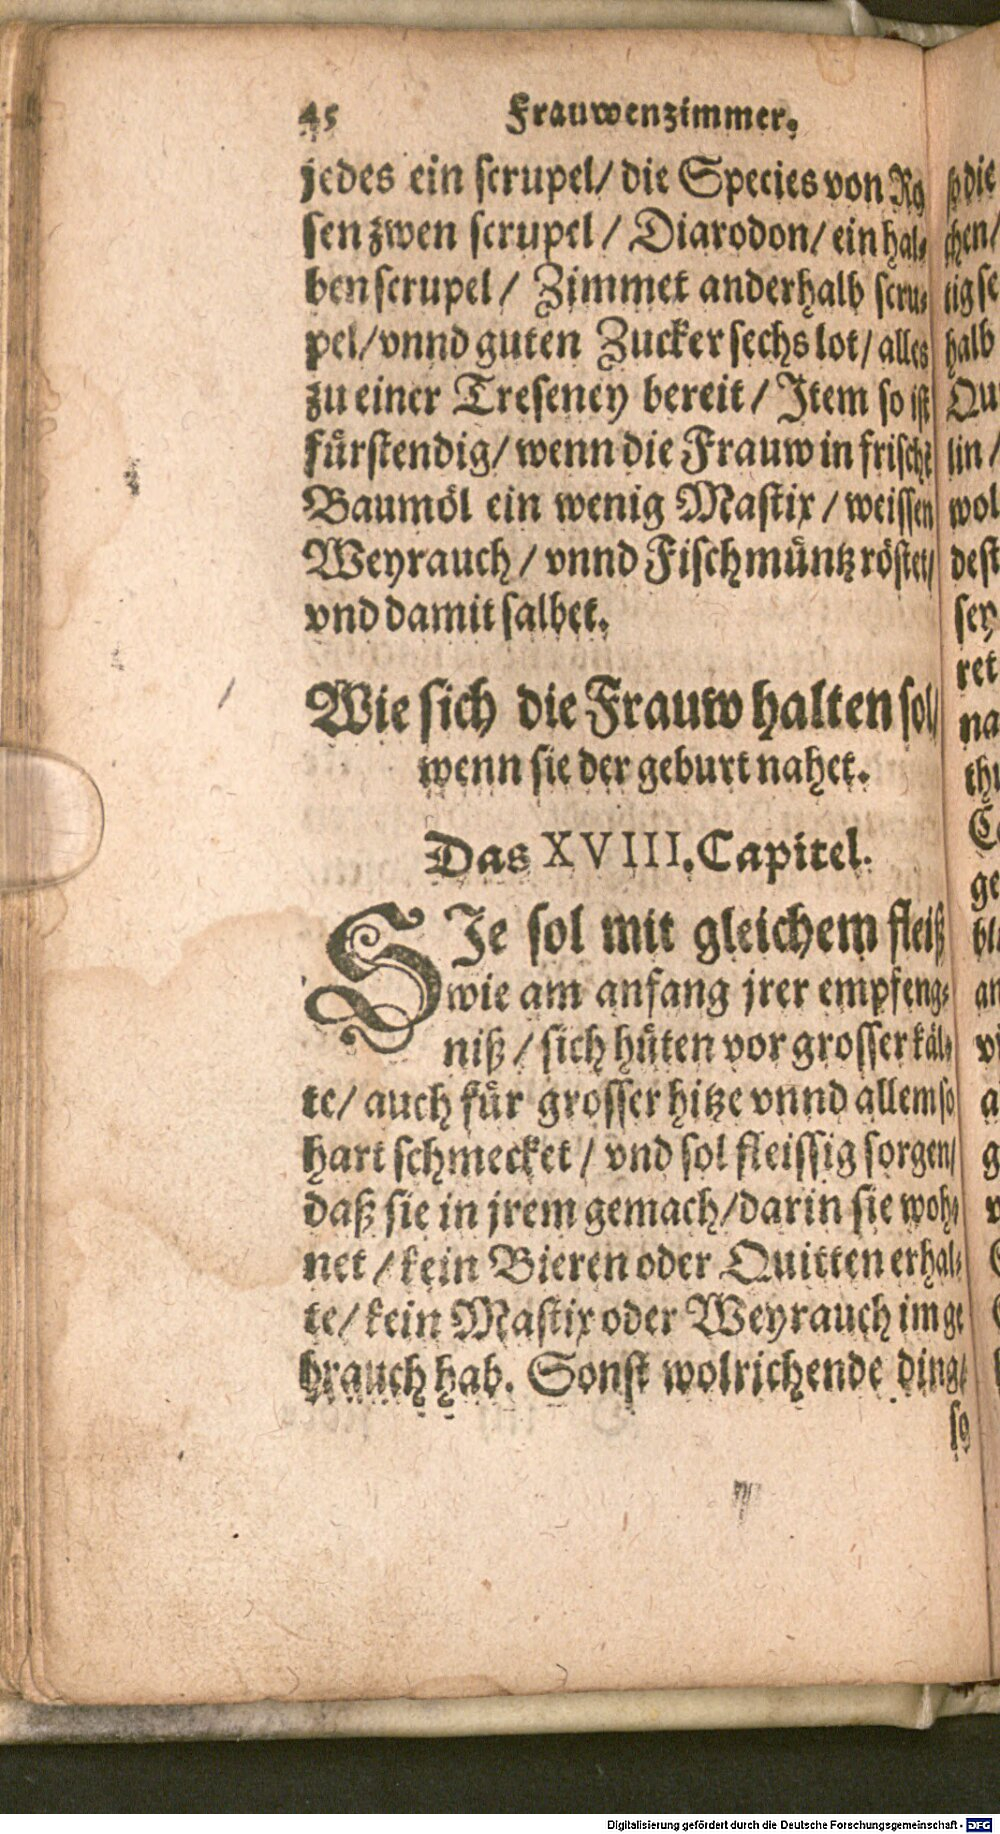 45 Frauwenzimmer.
jedes ein scrupel/ die Species von Ro
sen zwen scrupel / Diarodon/ ein hal-
ben scrupel / Zimmet anderhalb scru-
pel/vnnd guten Zucker sechs lot/ alles
zu einer Treseney bereit / Item so ist
fürstendig/ wenn die Frauw in frischẽ
Baumöl ein wenig Mastix / weissen
Weyrauch / vnnd Fischmüntz röstet/
vnd damit salbet.
Wie sich die Frauw halten sol/
wenn sie der geburt nahet.
Das XVIII. Capitel.
SIe sol mit gleichem fleiß
wie am anfang jrer empfeng-
niß / sich hüten vor grosser käl-
te/ auch für grosser hitze vnnd allem so
hart schmecket / vnd sol fleissig sorgen/
daß sie in jrem gemach/darin sie woh-
net / kein Bieren oder Quitten erhal-
te/ kein Mastix oder Weyrauch im ge
brauch hab. Sonst wolrichende ding/
so
so die
chen/
tig se
halb
Qu
lin /
wol
dest
sey
ret
na
thu
ge
bl
an
a
g
Digitalisierung gefördert durch die Deutsche Forschungsgemeinschaft - DFG